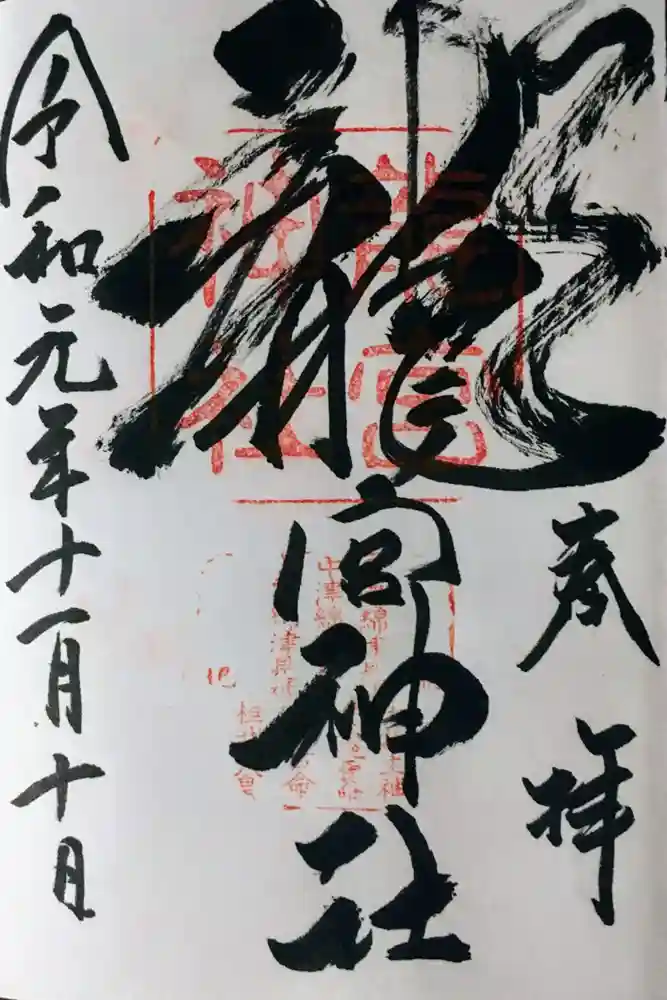 奉拝
龍宮神社
龍宮
神社
令和元年十一月十日